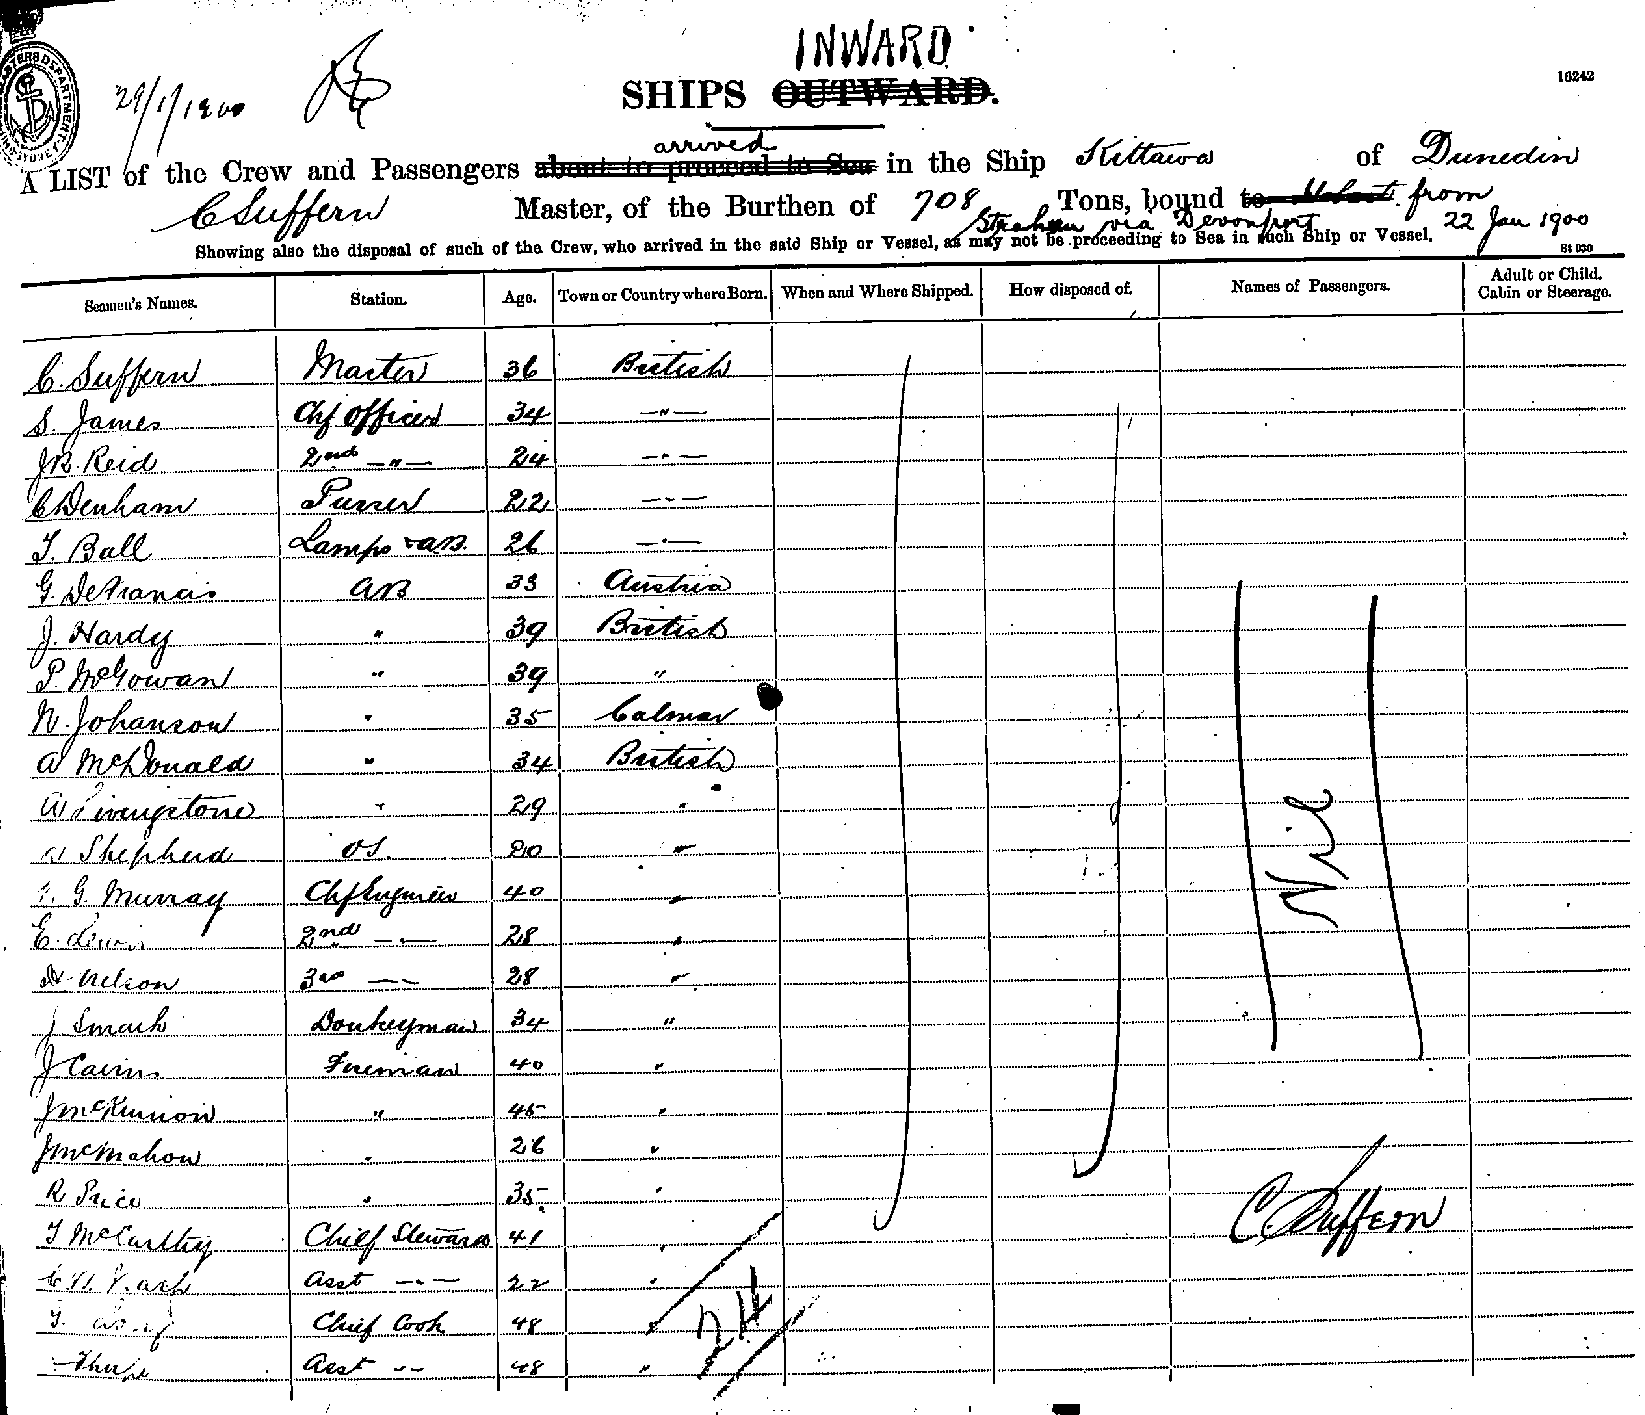 INWARD
29/1/1900
SHIPS OUTWARD.
16242
arrived
A LIST of the Crew and Passengers about to proceed to Sea in the Ship Kittawa of Dunedin
C Suffern Master, of the Burthen of 708 Tons, bound to Hobart from
Strahan via Devonport 22 Jan 1900
Showing also the disposal of such of the Crew, who arrived in the said Ship or Vessel, as may not be proceeding to Sea in such Ship or Vessel.
Seamen's Names. Station. Age. Town or Country where Born. When and Where Shipped. How disposed of. Names of Passengers. Adult or Child. Cabin or Steerage.
C. Suffern Master 36 British
S. James Chf Officer 34 —"—
J B. Reid 2nd —"— 24 —"—
C Denham Purser 22 —"—
T. Ball Lamps & AB. 26 —"—
G. DeFrancis AB 33 Austria
J. Hardy " 39 British
P. McGowan " 39 "
N. Johanson " 35 Calmar
A McDonald " 34 British
A Livingstone " 29 "
A Shepherd OS. 20 "
G. Murray Chf Engineer 40 "
E. Lewis 2nd —"— 28 "
H. Nelson 3rd —"— 28 "
J Smark Donkeyman 34 "
J Cairns Fireman 40 "
J McKinnon " 45 "
J McMahon " 26 "
R Price " 35 "
T McCarthy Chief Steward 41 "
C Asst —"— 22 "
T. Chief Cook 48 "
Thorpe Asst —"— 48 "
Nil
C. Suffern
24